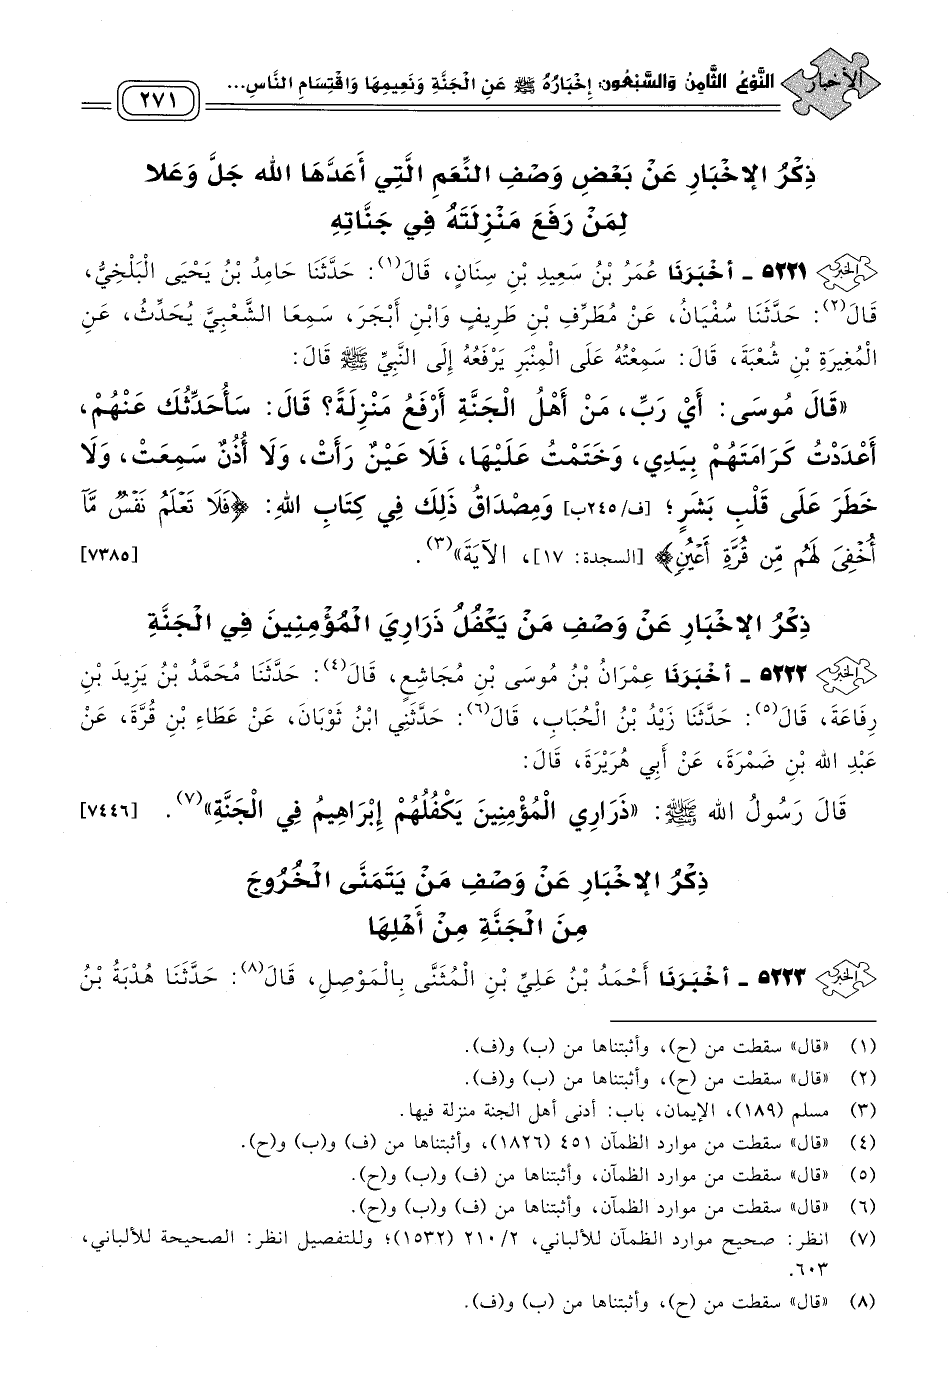 الأخبار
النَّوْعُ الثَّامِنُ وَالسَّبْعُونَ: إِخْبَارُهُ ﷺ عَنِ الْجَنَّةِ وَنَعِيمِهَا وَاقْتِسَامِ النَّاسِ...
٢٧١
ذِكْرُ الإخْبَارِ عَنْ بَعْضِ وَصْفِ النِّعَمِ الَّتِي أَعَدَّهَا الله جَلَّ وَعَلا
لِمَنْ رَفَعَ مَنْزِلَتَهُ فِي جَنَّاتِهِ
٥٢٢١ - أخْبَرَنَا عُمَرُ بْنُ سَعِيدِ بْنِ سِنَانٍ، قَالَ(١): حَدَّثَنَا حَامِدُ بْنُ يَحْيَى الْبَلْخِيُّ،
قَالَ(٢): حَدَّثَنَا سُفْيَانُ، عَنْ مُطَرِّفِ بْنِ طَرِيفٍ وَابْنِ أَبْجَرَ، سَمِعَا الشَّعْبِيَّ يُحَدِّثُ، عَنِ
الْمُغِيرَةِ بْنِ شُعْبَةَ، قَالَ: سَمِعْتُهُ عَلَى الْمِنْبَرِ يَرْفَعُهُ إِلَى النَّبِيِّ ﷺ قَالَ:
«قَالَ مُوسَى: أَيْ رَبِّ، مَنْ أَهْلُ الْجَنَّةِ أَرْفَعُ مَنْزِلَةً؟ قَالَ: سَأُحَدِّثُكَ عَنْهُمْ،
أَعْدَدْتُ كَرَامَتَهُمْ بِيَدِي، وَخَتَمْتُ عَلَيْهَا، فَلَا عَيْنٌ رَأَتْ، وَلَا أُذُنٌ سَمِعَتْ، وَلَا
خَطَرَ عَلَى قَلْبِ بَشَرٍ؛ [ف/٢٤٥ب] وَمِصْدَاقُ ذَلِكَ فِي كِتَابِ اللهِ: ﴿فَلَا تَعْلَمُ نَفْسٌ مَّآ
أُخْفِىَ لَهُم مِّن قُرَّةِ أَعْيُنٍ﴾ [السجدة: ١٧]، الآيَةَ»(٣). [٧٣٨٥]
ذِكْرُ الإخْبَارِ عَنْ وَصْفِ مَنْ يَكْفُلُ ذَرَارِيَ الْمُؤْمِنِينَ فِي الْجَنَّةِ
٥٢٢٢ - أخْبَرَنَا عِمْرَانُ بْنُ مُوسَى بْنِ مُجَاشِعٍ، قَالَ(٤): حَدَّثَنَا مُحَمَّدُ بْنُ يَزِيدَ بْنِ
رِفَاعَةَ، قَالَ(٥): حَدَّثَنَا زَيْدُ بْنُ الْحُبَابِ، قَالَ(٦): حَدَّثَنِي ابْنُ ثَوْبَانَ، عَنْ عَطَاءِ بْنِ قُرَّةَ، عَنْ
عَبْدِ الله بْنِ ضَمْرَةَ، عَنْ أَبِي هُرَيْرَةَ، قَالَ:
قَالَ رَسُولُ الله ﷺ: «ذَرَارِي الْمُؤْمِنِينَ يَكْفُلُهُمْ إِبْرَاهِيمُ فِي الْجَنَّةِ»(٧). [٧٤٤٦]
ذِكْرُ الإخْبَارِ عَنْ وَصْفِ مَنْ يَتَمَنَّى الْخُرُوجَ
مِنَ الْجَنَّةِ مِنْ أَهْلِهَا
٥٢٢٣ - أخْبَرَنَا أَحْمَدُ بْنُ عَلِيِّ بْنِ الْمُثَنَّى بِالْمَوْصِلِ، قَالَ(٨): حَدَّثَنَا هُدْبَةُ بْنُ
(١) «قال» سقطت من (ح)، وأثبتناها من (ب) و(ف).
(٢) «قال» سقطت من (ح)، وأثبتناها من (ب) و(ف).
(٣) مسلم (١٨٩)، الإيمان، باب: أدنى أهل الجنة منزلة فيها.
(٤) «قال» سقطت من موارد الظمآن ٤٥١ (١٨٢٦)، وأثبتناها من (ف) و(ب) و(ح).
(٥) «قال» سقطت من موارد الظمآن، وأثبتناها من (ف) و(ب) و(ح).
(٦) «قال» سقطت من موارد الظمآن، وأثبتناها من (ف) و(ب) و(ح).
(٧) انظر: صحيح موارد الظمآن للألباني، ٢/ ٢١٠ (١٥٣٢)؛ وللتفصيل انظر: الصحيحة للألباني،
٦٠٣.
(٨) «قال» سقطت من (ح)، وأثبتناها من (ب) و(ف).